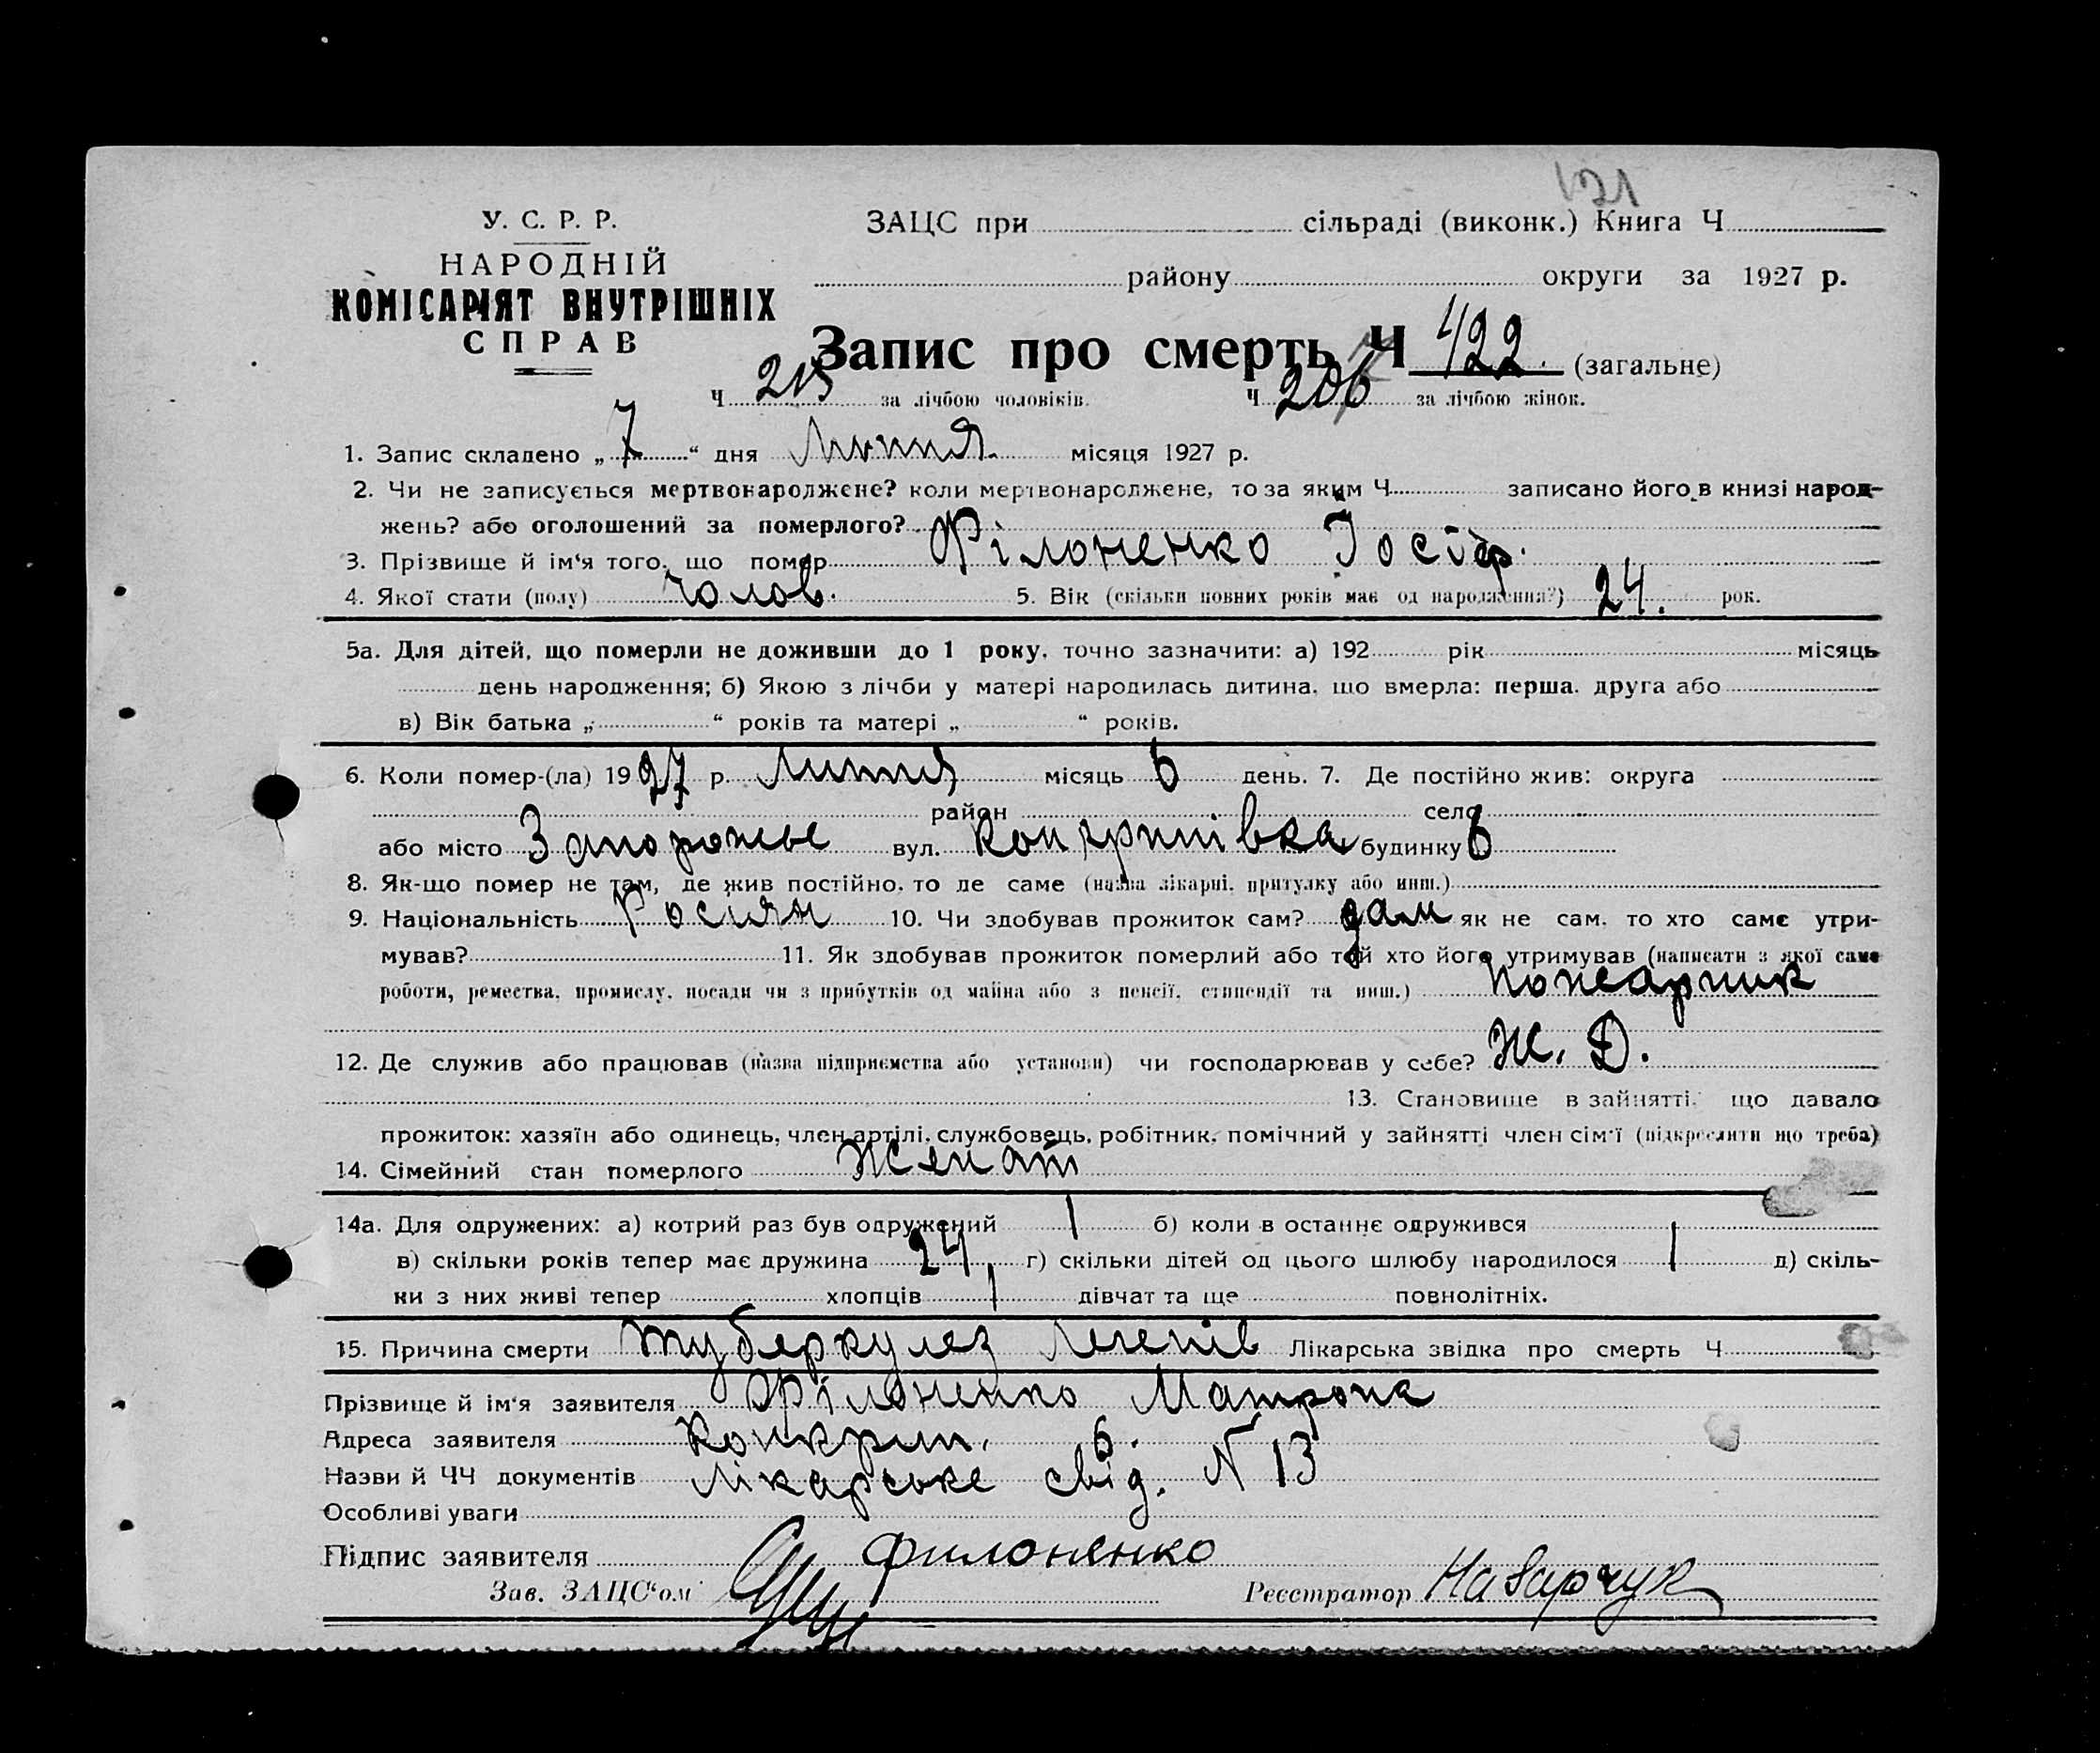 121
У. С. Р. Р.
НАРОДНІЙ
КОМІСАРІЯТ ВНУТРІШНІХ
СПРАВ
ЗАЦС при сільраді (виконк.) Книга Ч
району округи за 1927 р.
Запис про смерть Ч 422. (загальне)
Ч 215 за лічбою чоловіків. Ч 206 за лічбою жінок.
1. Запис складено „ 7 “ дня Липня місяця 1927 р.
2. Чи не записується мертвонароджене? коли мертвонароджене, то за яким Ч записано його в книзі народ-
жень? або оголошений за померлого?
3. Прізвище й ім'я того, що помер Філоненко Іосіф.
4. Якої стати (полу) чолов. 5. Вік (скільки повних років має од народження?) 24. рок.
5а. Для дітей, що померли не доживши до 1 року, точно зазначити: а) 192 рік місяць
день народження; б) Якою з лічби у матері народилась дитина, що вмерла: перша, друга або
в) Вік батька „ “ років та матері „ “ років.
6. Коли помер-(ла) 1927 р. Липня місяць 6 день. 7. Де постійно жив: округа
район село
або місто Запорожье вул. Конкрипівка будинку 6
8. Як-що помер не там, де жив постійно, то де саме (назва лікарні, притулку або инш.)
9. Національність Росіян 10. Чи здобував прожиток сам? сам як не сам, то хто саме утри-
мував? 11. Як здобував прожиток померлий або той хто його утримував (написати з якої саме
роботи, ремества, промислу, посади чи з прибутків од майна або з пенсії, стипендії та инш.) пожарник
12. Де служив або працював (назва підприємства або установи) чи господарював у себе? Ж. Д.
13. Становище в зайнятті, що давало
прожиток: хазяїн або одинець, член артілі, службовець, робітник, помічний у зайнятті член сім'ї (підкреслити що треба)
14. Сімейний стан померлого Женат
14а. Для одружених: а) котрий раз був одружений 1 б) коли в останнє одружився
в) скільки років тепер має дружина 24 г) скільки дітей од цього шлюбу народилося 1 д) скіль-
ки з них живі тепер хлопців 1 дівчат та ще повнолітніх.
15. Причина смерти туберкулез Легенів Лікарська звідка про смерть Ч
Прізвище й ім'я заявителя Філоненко Матрона
Адреса заявителя Конкрип. 6.
Назви й ЧЧ документів лікарське свід. N 13
Особливі уваги
Підпис заявителя Филоненко
Зав. ЗАЦС'ом Реєстратор Назарчук